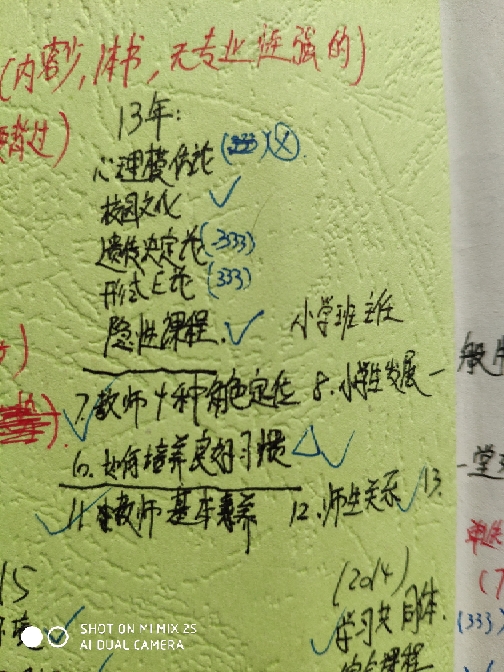 (内容少,1本书,无专业性强的)
13年:
心理模仿论 (333)
校园文化 ✓
遗传决定论(333)
形式E论 (333)
隐性课程. ✓ 小学班主任
7.教师十种角色定位 8.小学生发展一
般
6.如何培养良好习惯 △✓
一堂
11.教师基本素养 12.师生关系 ✓ 13.
(2014)
学习共同体.
(333)
SHOT ON MI MIX 2S
AI DUAL CAMERA